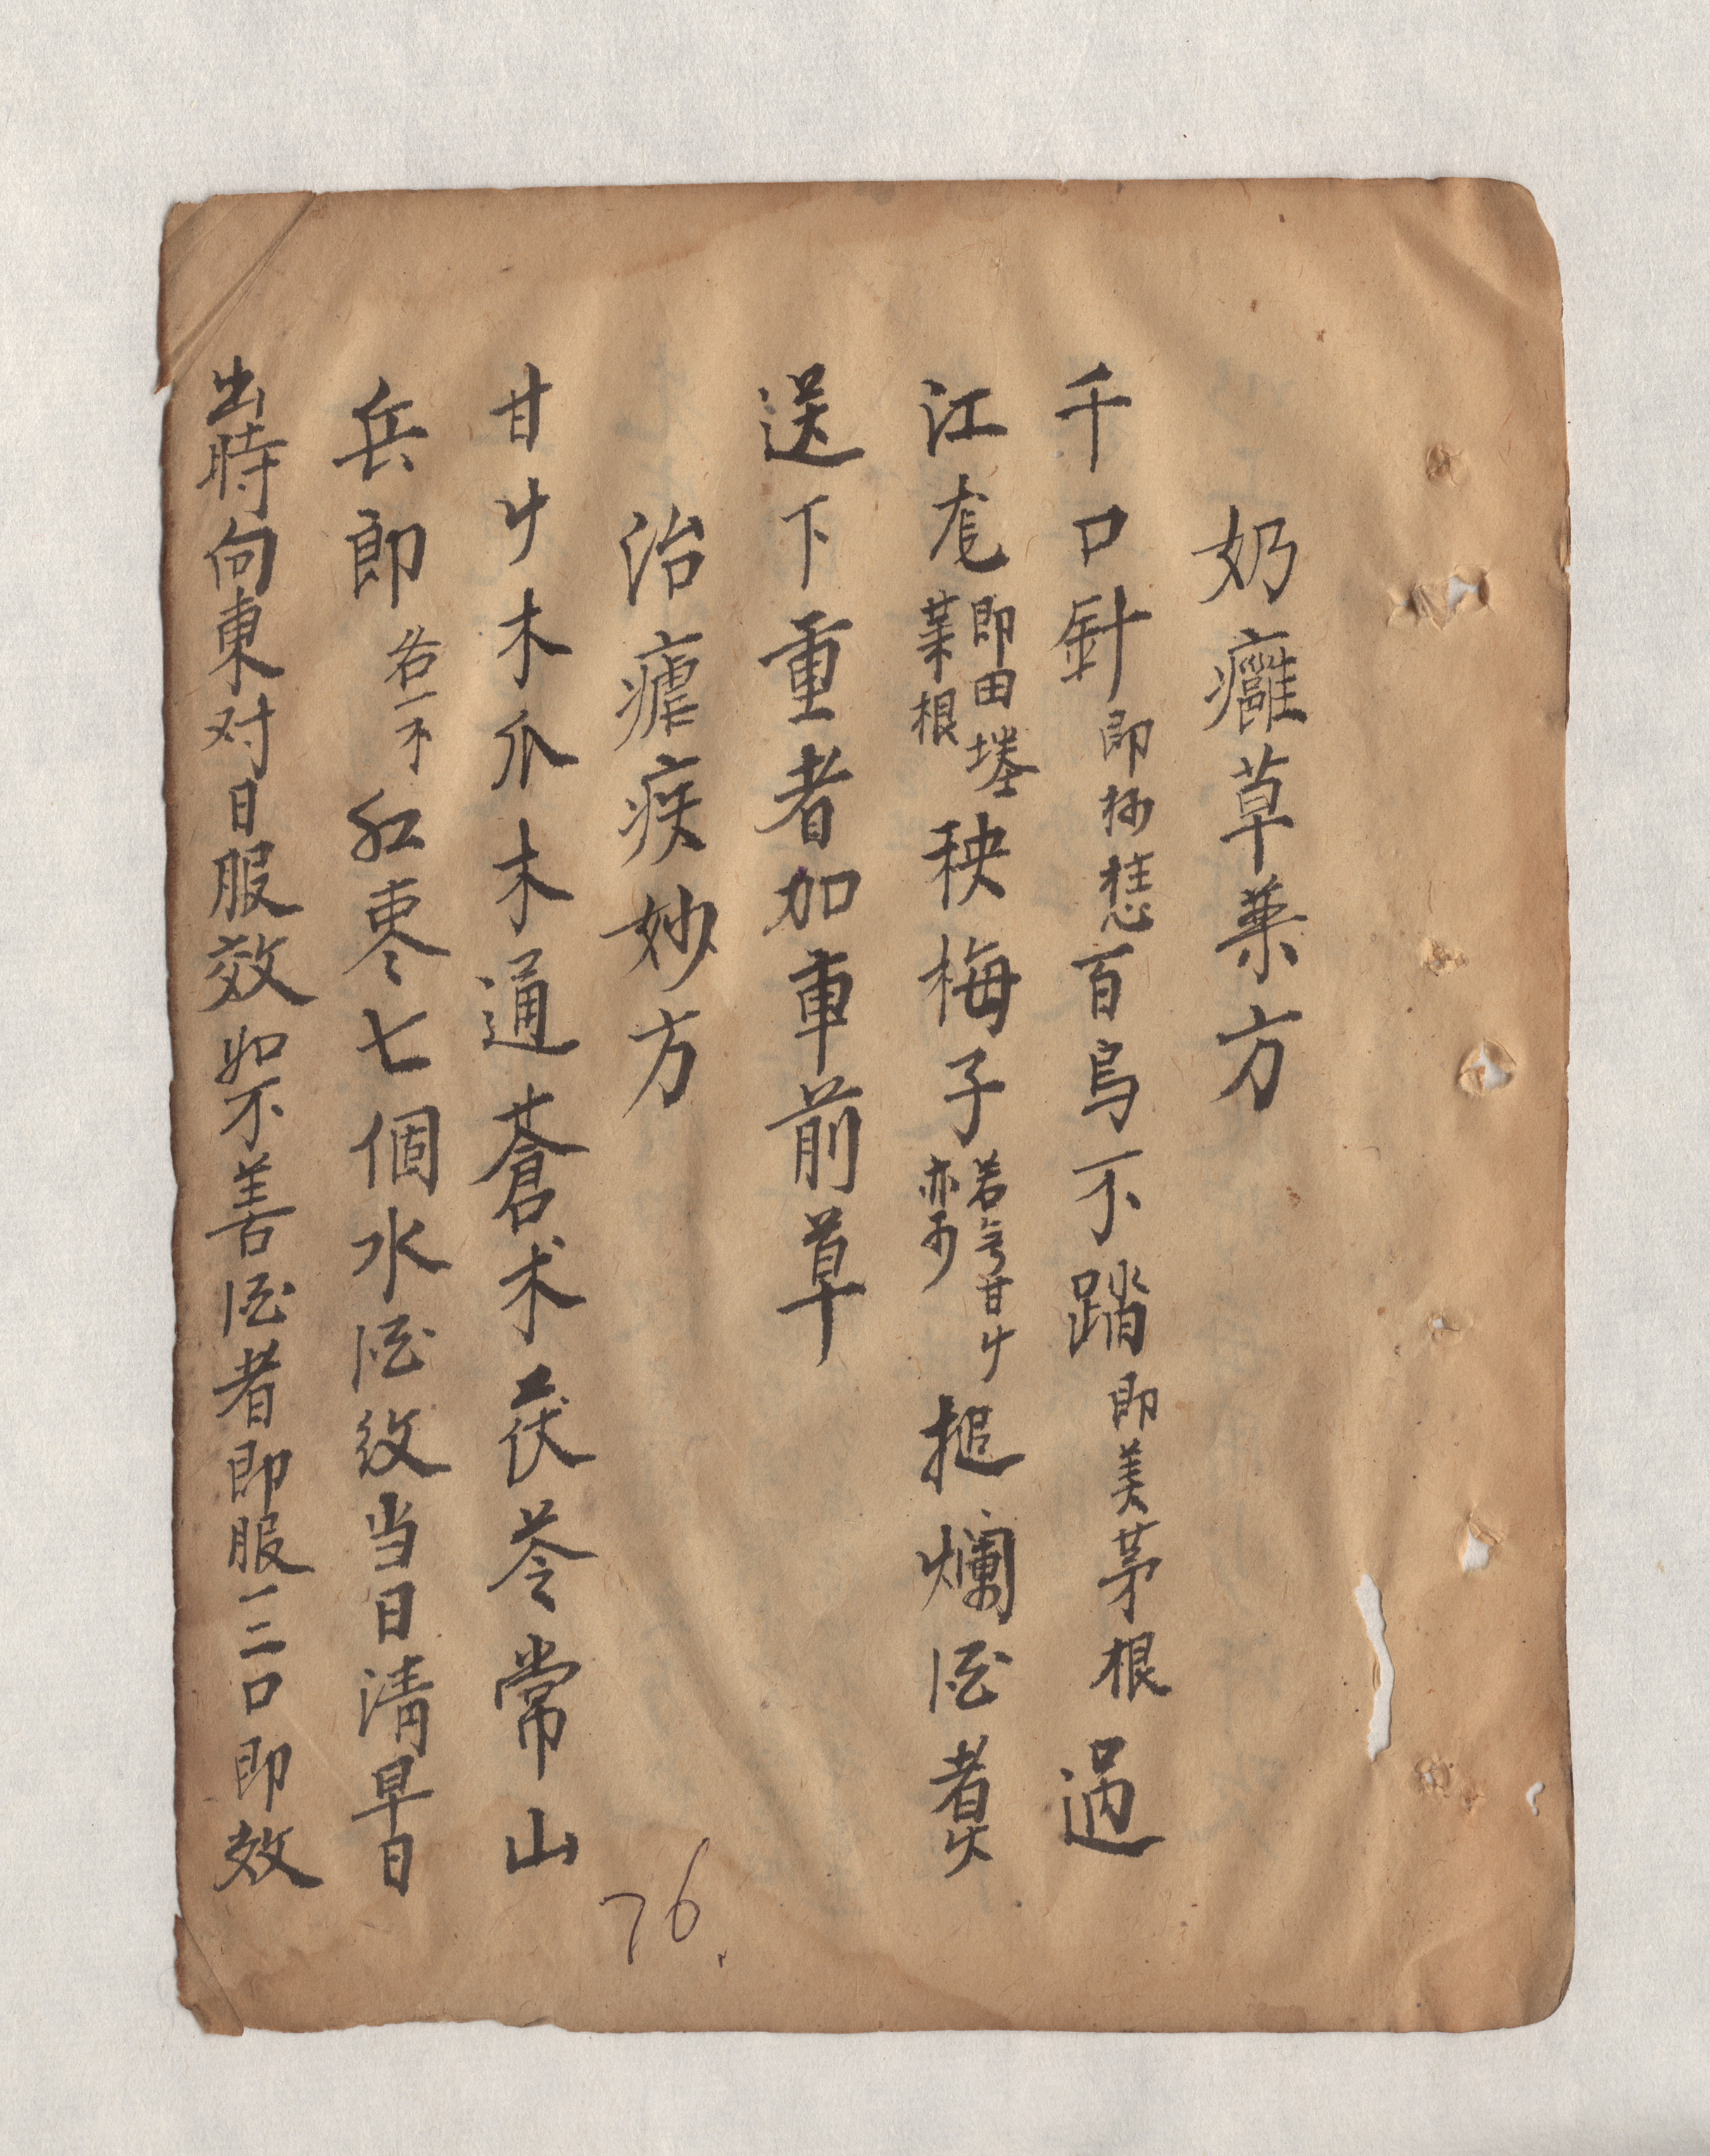 奶癰草藥方
千口針即百鳥不踏即美茅根過
江尨即田塍業根秧梅子若亏甘艹亦可搥爛酒煑火
送下重者加車前草
治瘧疾妙方
甘艹木爪木通蒼术茯苓常山
兵郎各一不紅枣七個水酒炆当日清早日
出時向東对日服效如不善酒者即服一二口即效
76.